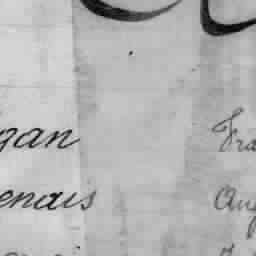 gan Fra
enais Aug